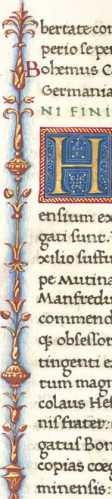 bertate con
perio se per
Bohemus C
Germania
NI FINI
H
ensium ex
gati sunt.
xilio
pe Mutina
Manfredo
commend
obsessor
tingenti e
tum mag
colaus Hes
nis frater.
gatus Bon
copias coe
minensis